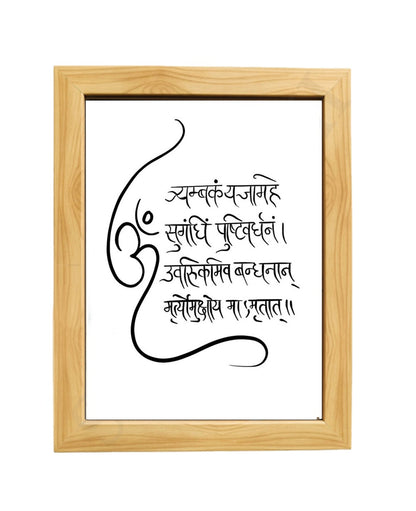 ॐ
त्र्यम्बकं यजामहे
सुगंधिं पुष्टिवर्धनं।
उर्वारुकमिव बन्धनान्
मृत्योर्मुक्षीय मा ऽमृतात्॥